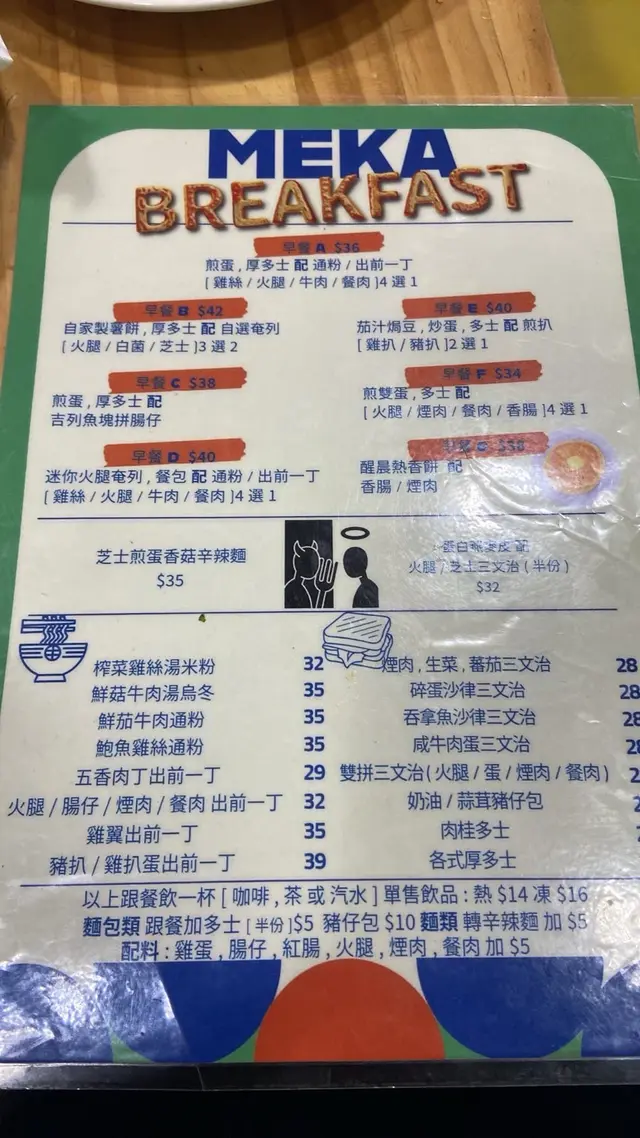 MEKA
BREAKFAST
早餐 A $36
煎蛋 , 厚多士 配 通粉 / 出前一丁
[ 雞絲 / 火腿 / 牛肉 / 餐肉 ]4 選 1
早餐 B $42
自家製薯餅 , 厚多士 配 自選奄列
[ 火腿 / 白菌 / 芝士 ]3 選 2
早餐 E $40
茄汁焗豆 , 炒蛋 , 多士 配 煎扒
[ 雞扒 / 豬扒 ]2 選 1
早餐 C $38
煎蛋 , 厚多士 配
吉列魚塊拼腸仔
早餐 F $34
煎雙蛋 , 多士 配
[ 火腿 / 煙肉 / 餐肉 / 香腸 ]4 選 1
早餐 D $40
迷你火腿奄列 , 餐包 配 通粉 / 出前一丁
[ 雞絲 / 火腿 / 牛肉 / 餐肉 ]4 選 1
早餐
醒晨熱香餅 配
香腸 / 煙肉
芝士煎蛋香菇辛辣麵
$35
蛋白
配
火腿 / 芝士三文治 ( 半份 )
$32
榨菜雞絲湯米粉 32
鮮菇牛肉湯烏冬 35
鮮茄牛肉通粉 35
鮑魚雞絲通粉 35
五香肉丁出前一丁 29
火腿 / 腸仔 / 煙肉 / 餐肉 出前一丁 32
雞翼出前一丁 35
豬扒 / 雞扒蛋出前一丁 39
煙肉 , 生菜 , 蕃茄三文治 28
碎蛋沙律三文治 28
吞拿魚沙律三文治 28
咸牛肉蛋三文治 28
雙拼三文治 ( 火腿 / 蛋 / 煙肉 / 餐肉 )
奶油 / 蒜茸豬仔包
肉桂多士
各式厚多士
以上跟餐飲一杯 [ 咖啡 , 茶 或 汽水 ] 單售飲品 : 熱 $14 凍 $16
麵包類 跟餐加多士 [ 半份 ]$5 豬仔包 $10 麵類 轉辛辣麵 加 $5
配料 : 雞蛋 , 腸仔 , 紅腸 , 火腿 , 煙肉 , 餐肉 加 $5